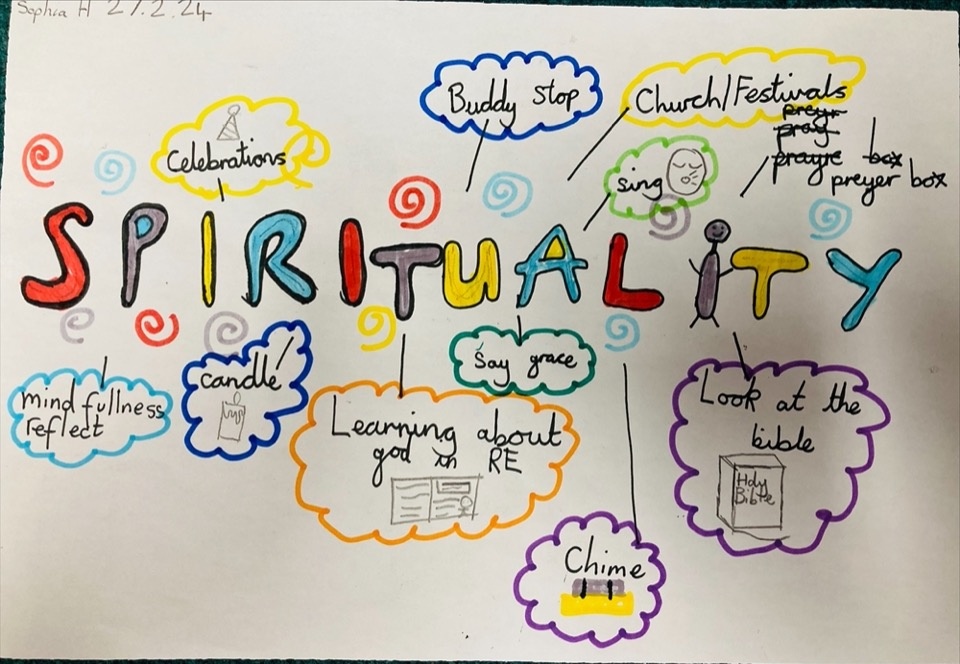 Sophia H 27.2.24
Buddy Stop
Church/Festivals
preyr
pray
prayre box
preyer box
Celebrations
sing
SPIRITUALITY
mind fullness
reflect
candle
Say grace
Learning about
god in RE
Look at the
bible
Holy
Bible
Chime